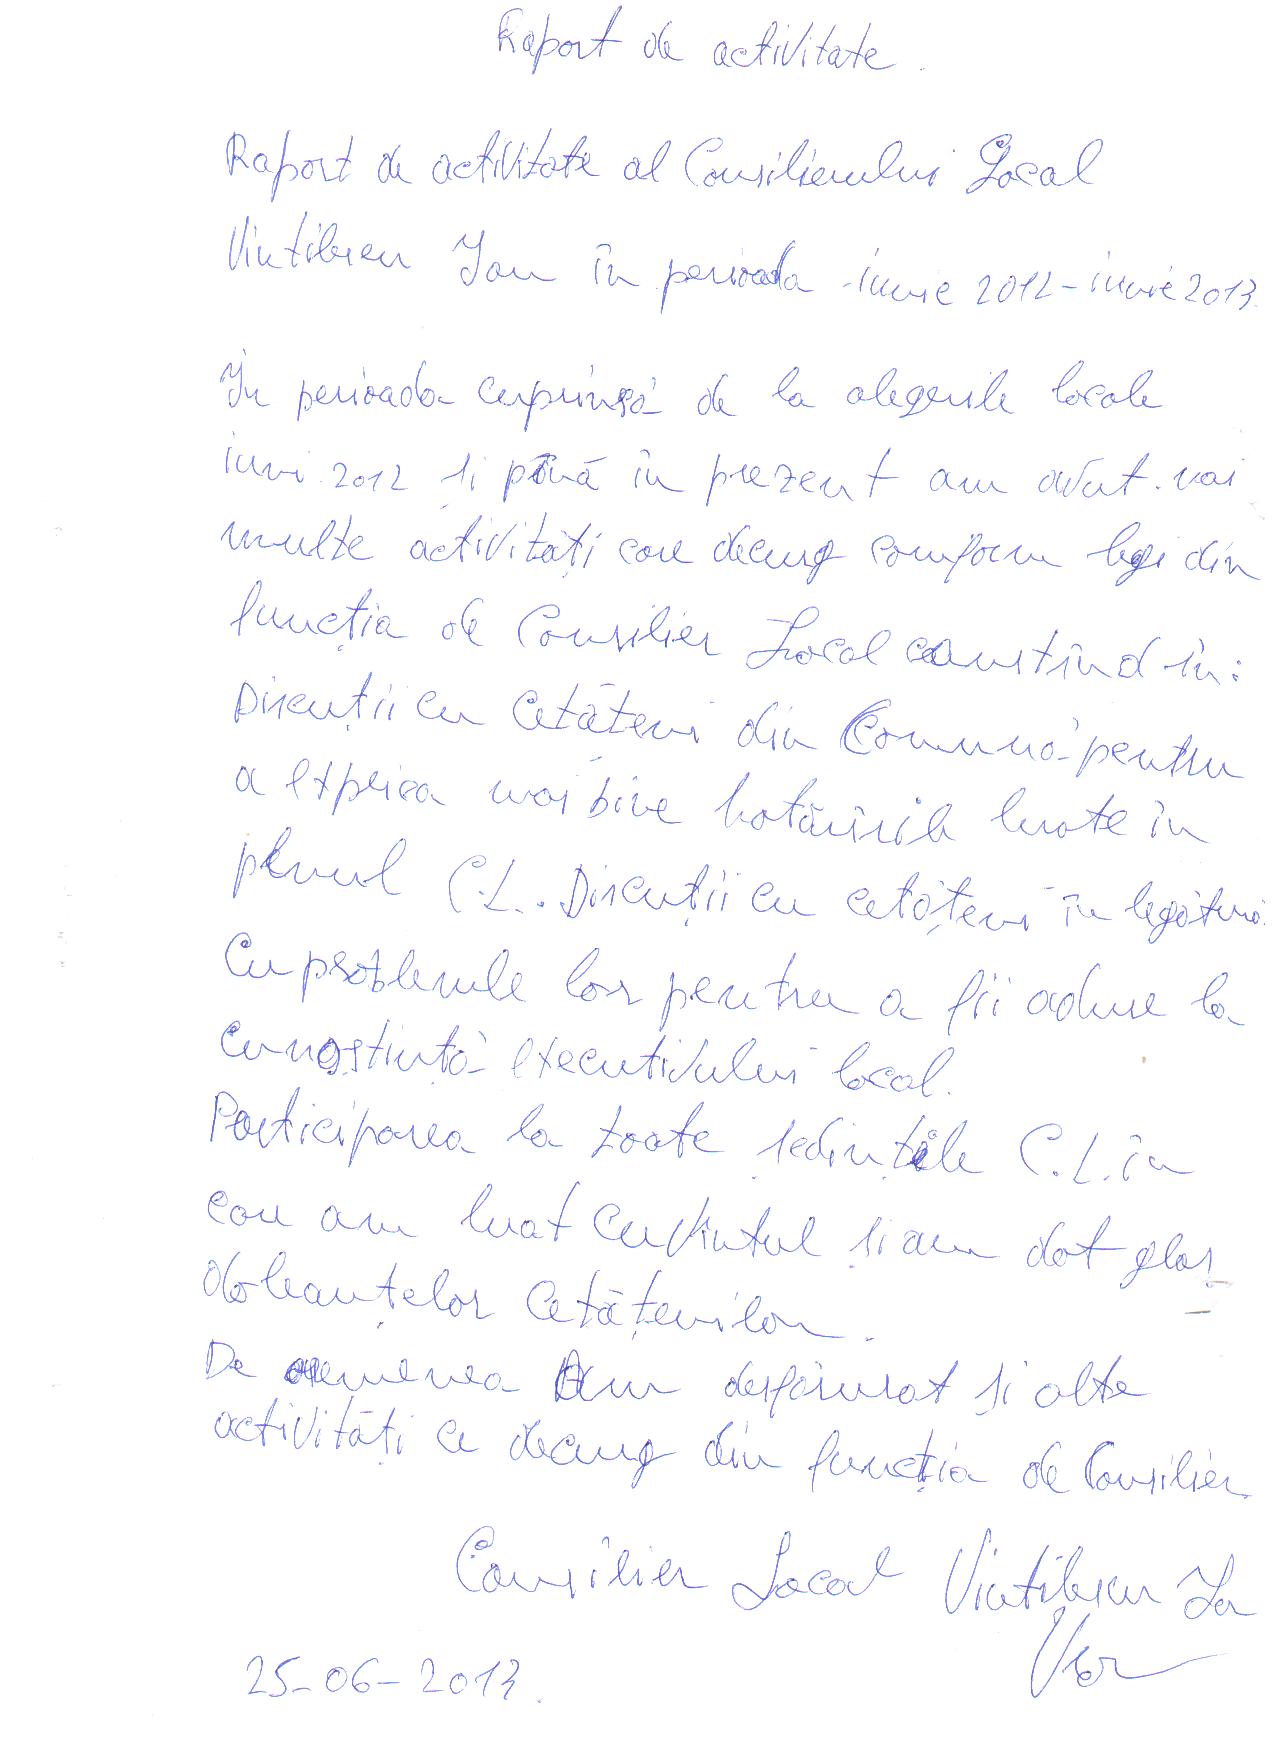 Raport de activitate.
Raport de activitate al Consilierului Local
Vintilescu Ion în perioada iunie 2012 - iunie 2013.
În perioada cuprinsă de la alegerile locale
iuni 2012 și până în prezent am avut mai
multe activități care decurg conform legi din
funcția de Consilier Local constînd în:
Discuții cu cetățeni din Comună pentru
a explica mai bine hotărîrile luate în
plenul C.L. Discuții cu cetățeni în legătură
Cu problemele lor pentru a fii aduse la
cunoștiuță executivului local.
Participarea la toate ședințele C.L. în
care am luat cuvîntul și am dat glas
doleanțelor cetățenilor.
De asemenea Am desfășurat și alte
activități ce decurg din funcția de Consilier.
Consilier Local Vintilescu Io
25-06-2013.